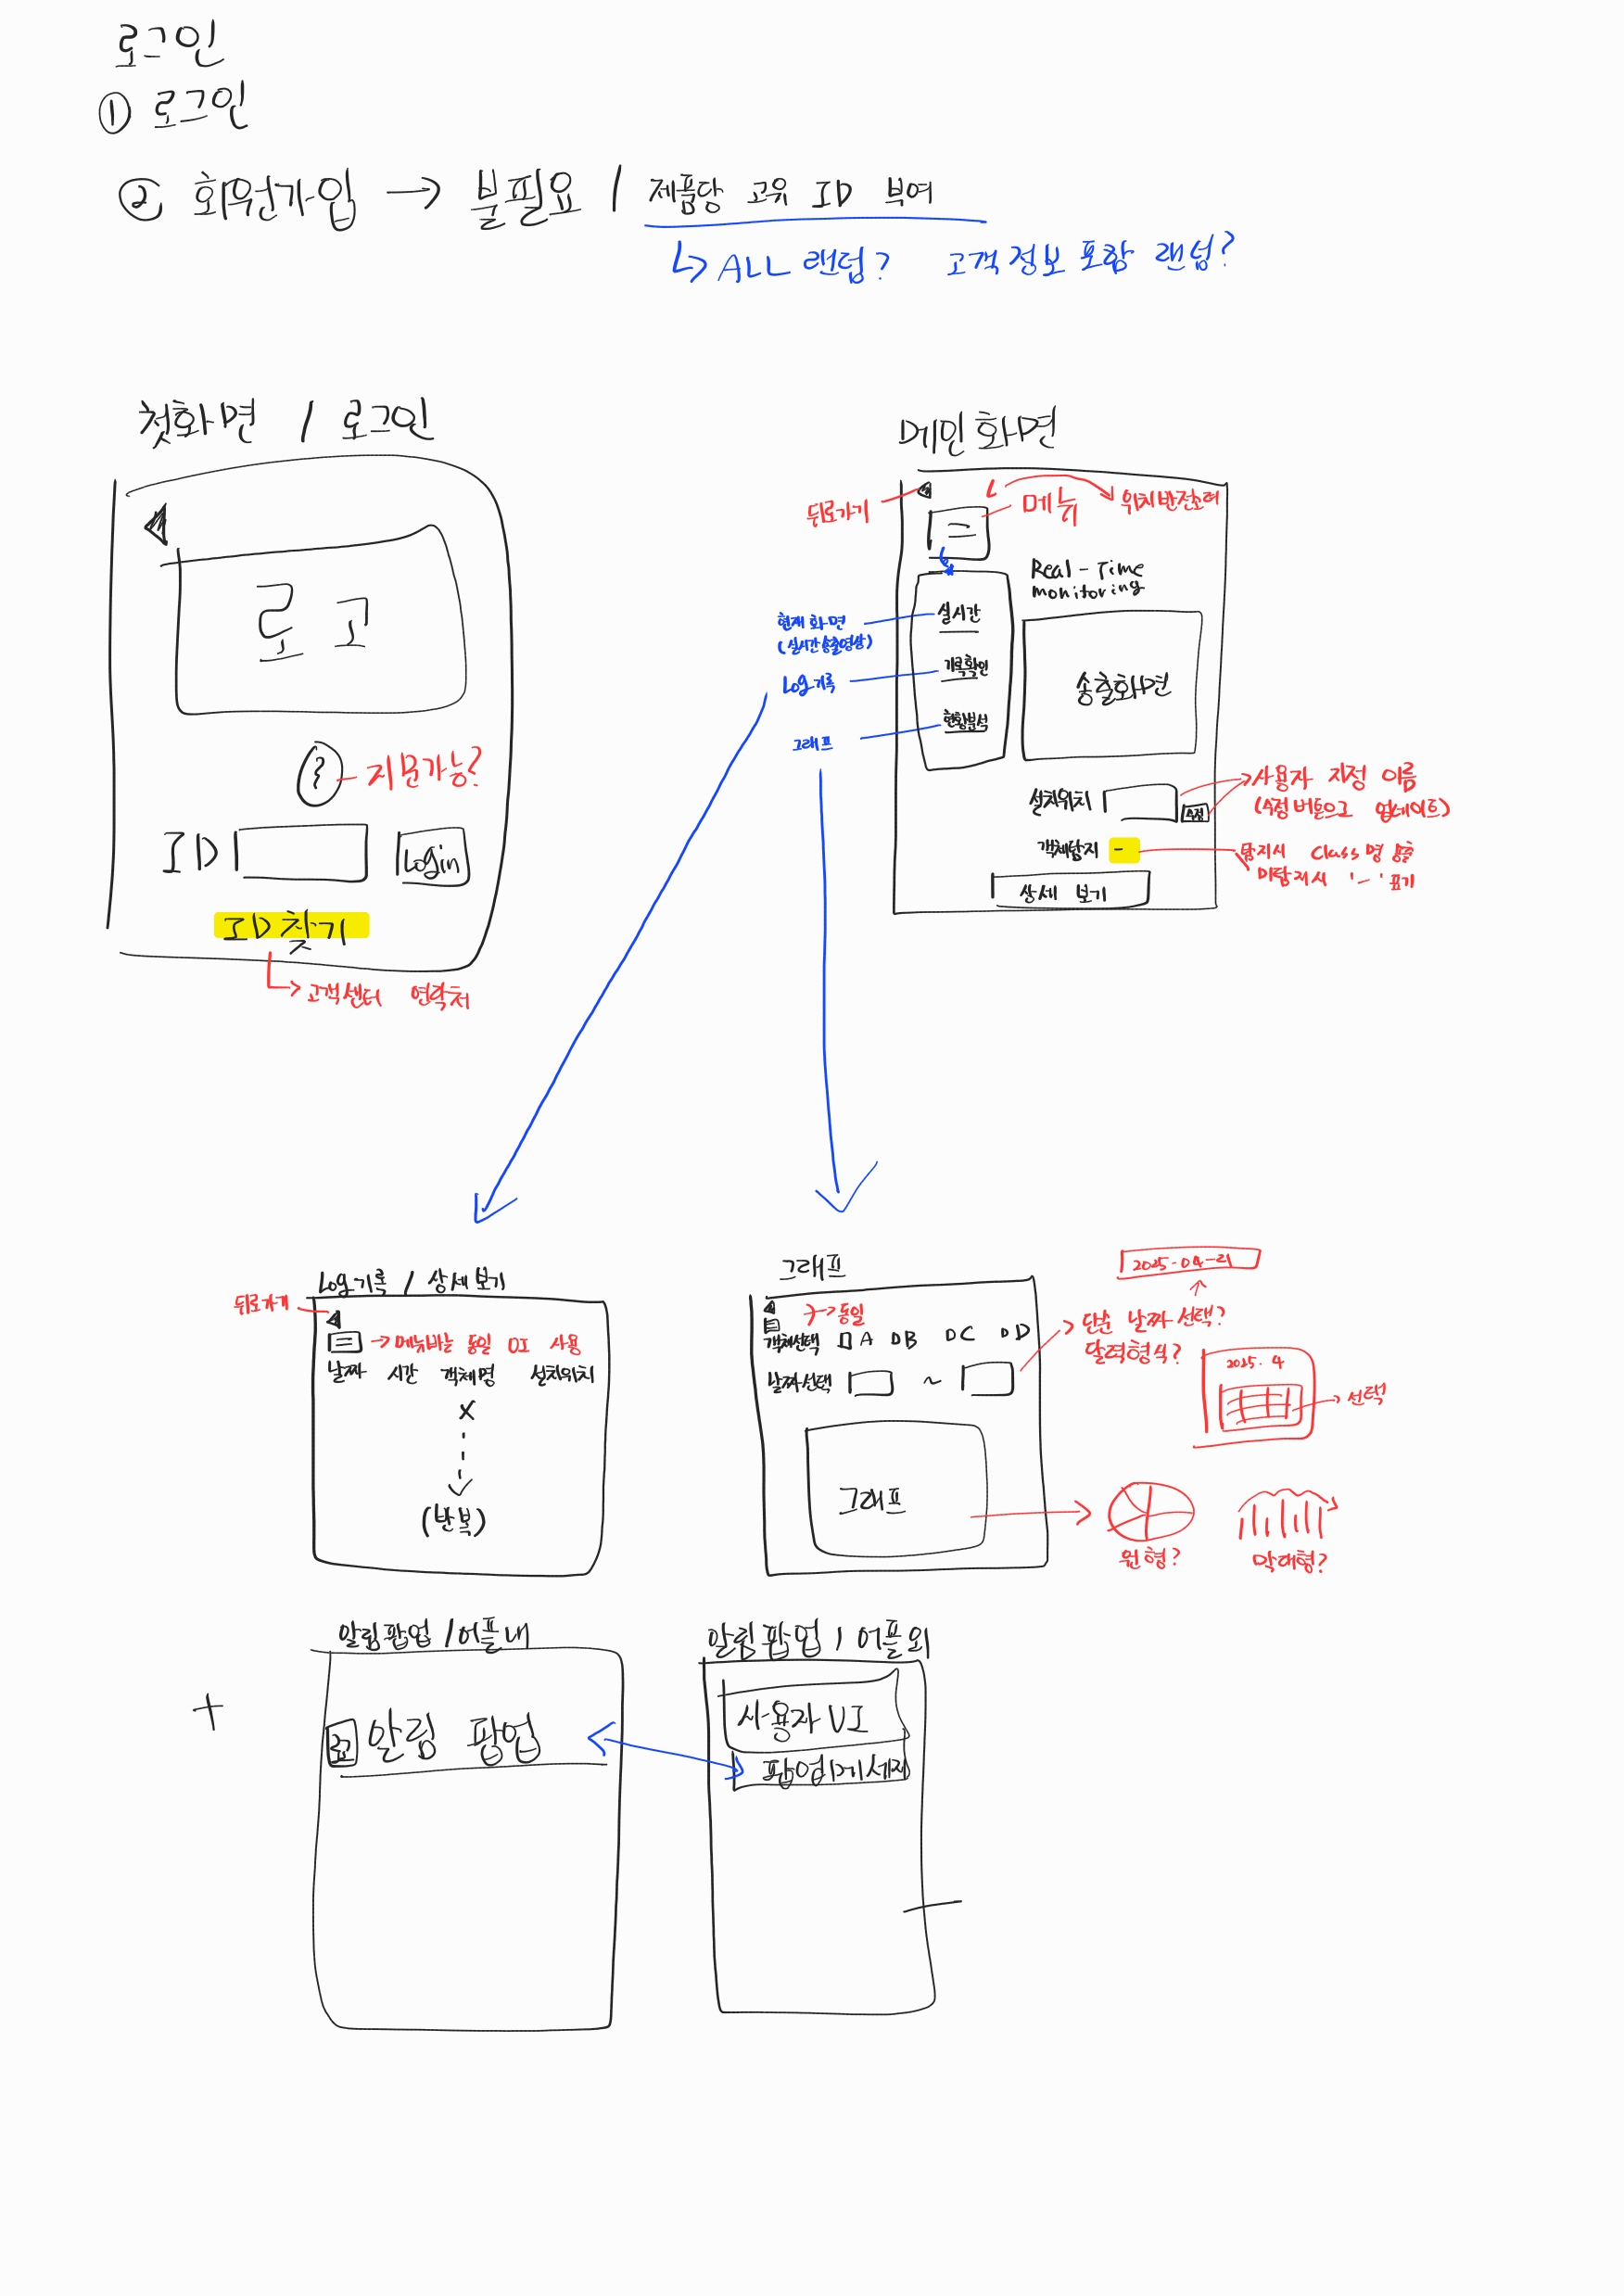 로그인
① 로그인
② 회원가입 → 불필요 / 제품당 고유 ID 부여
↳ ALL 랜덤? 고객정보 포함 랜덤?
첫화면 / 로그인
로고
지문가능?
ID
Login
ID찾기
고객센터 연락처
메인화면
뒤로가기
메뉴
위치반전초려
Real-Time
monitoring
실시간
기록확인
현황분석
현재화면
(실시간송출영상)
Log기록
그래프
송출화면
설치위치
수정
사용자 지정 이름
(수정버튼으로 업데이트)
객체탐지 -
탐지시 Class명 송출
미탐지시 '-' 표기
상세 보기
Log기록 / 상세보기
뒤로가기
→메뉴바는 동일 UI 사용
날짜 시간 객체명 설치위치
X
(반복)
그래프
}→동일
객체선택 □A □B □C □D
날짜선택 ~
2025-04-21
단순 날짜 선택?
달력형식?
2025. 4
→선택
그래프
원형?
막대형?
알림팝업 / 어플내
+
로고 알림 팝업
알림팝업 / 어플외
사용자 UI
팝업메세지